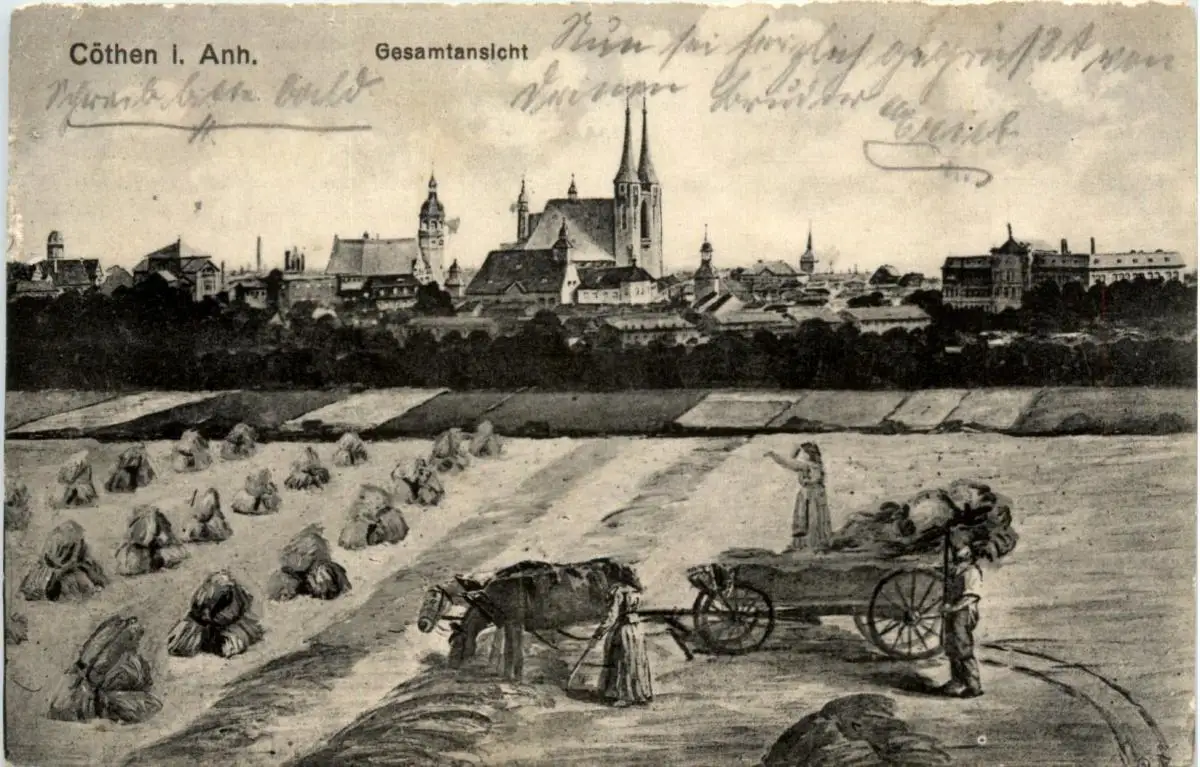 Cöthen i. Anh.
Gesamtansicht
Schreibe bitte bald
Nun sei herzlich gegrüsst von
Deinem Bruder
Erich